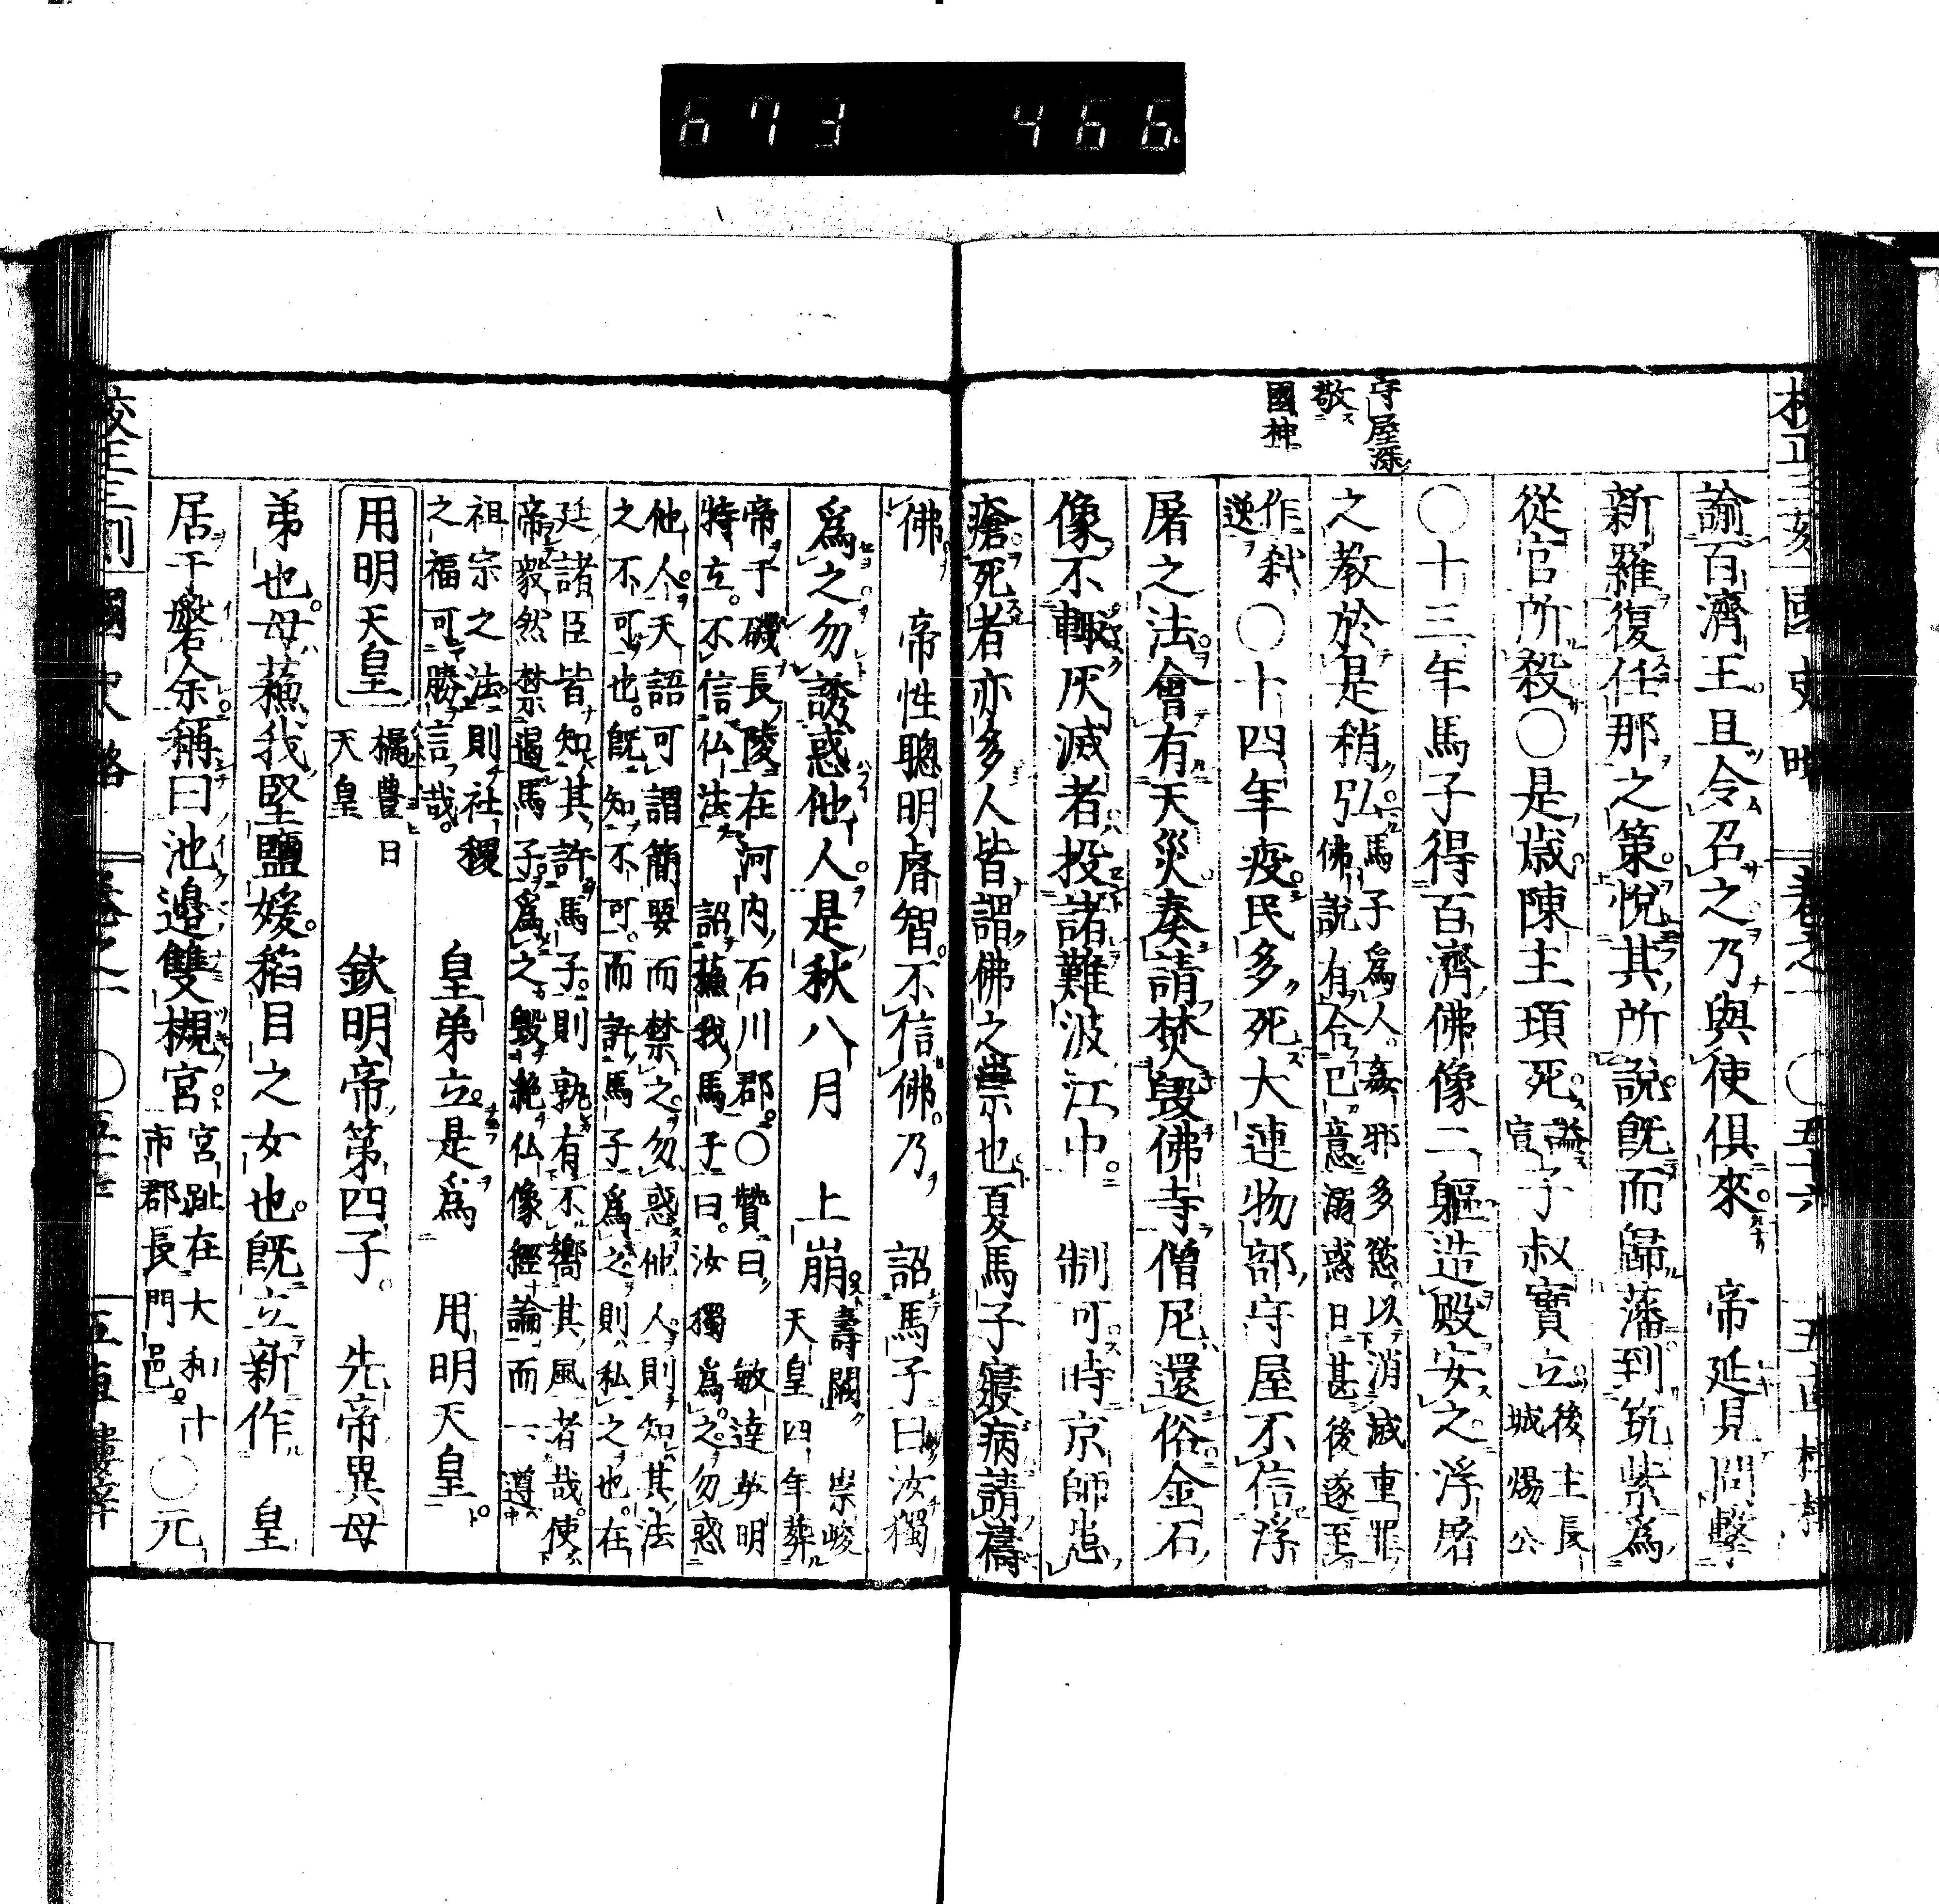 673 466
守屋深
敬
國神
諭百濟王且令召之乃與使俱來 帝延見問擊
新羅復任那之策悅其所說既而歸藩到筑紫爲
從官所殺○是歲陳主頊死謚宣子叔寶立後主長城煬公
○十三年馬子得百濟佛像二軀造殿安之浮屠
之教於是稍弘馬子爲人姦邪多慾以消滅重罪佛說有合己意溺惑日甚後遂至
作弑逆○十四年疫民多死大連物部守屋不信浮
屠之法會有天災奏請焚毀佛寺僧尼還俗金石
像不輙灰滅者投諸難波江中 制可時京師患
瘡死者亦多人皆謂佛之祟也夏馬子寢病請禱
佛 帝性聰明睿智不信佛乃 詔馬子曰汝獨
爲之勿誘惑他人是秋八月 上崩壽闕 崇峻天皇四年葬
帝于磯長陵在河內石川郡○贊曰 敏達英明
特立不信仏法 詔蘓我馬子曰汝獨爲之勿惑
他人天語可謂簡要而禁之勿惑他人則知其法
之不可也既知不可而許馬子爲之則私之也在
廷諸臣皆知其許馬子則孰有不嚮其風者哉使
帝毅然禁遏馬子爲之毀撓仏像經論而一遵
祖宗之法則社稷
之福可勝言哉 皇弟立是爲 用明天皇
用明天皇 橘豊日天皇 欽明帝第四子 先帝異母
弟也母蘓我堅鹽媛稻目之女也既立新作 皇
居于磐余稱曰池邉雙槻宮宮趾在大和十市郡長門邑○元